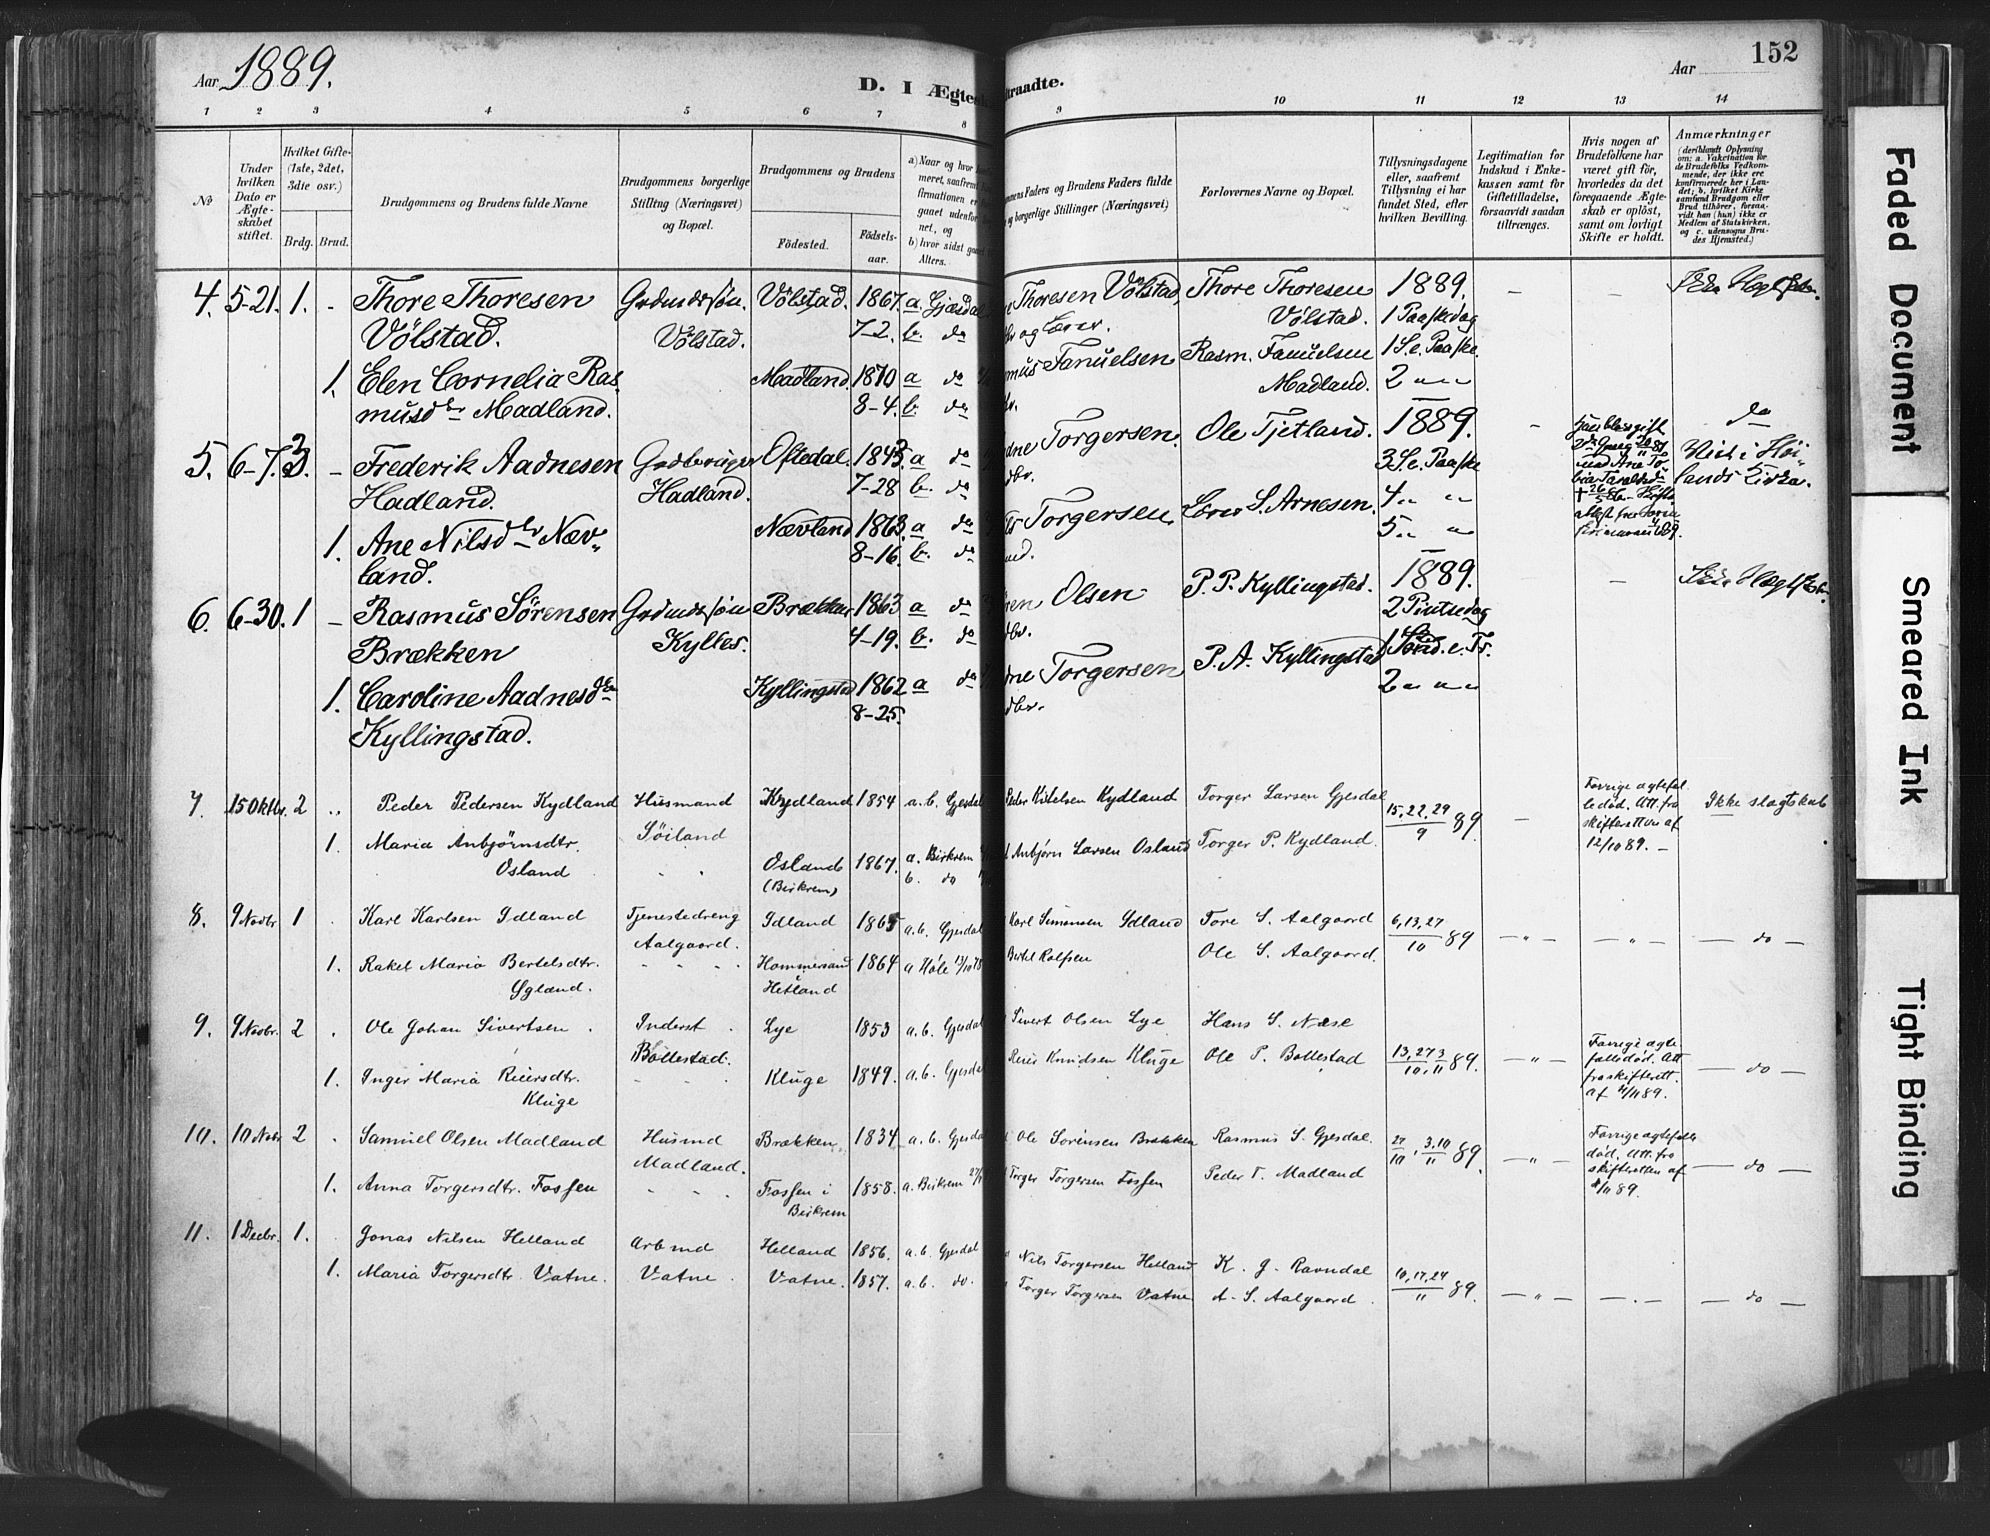 Aar 1889.
D. I Ægtesk
traadte.
Aar
152
1 2 3 4 5 6 7 8
9 10 11 12 13 14
No
Under hvilken Dato er Ægteskabet stiftet.
Hvilket Gifte- (1ste, 2det, 3die osv.)
Brdg. Brud.
Brudgommens og Brudens fulde Navne
Brudgommens borgerlige Stilling (Næringsvei) og Bopæl.
Brudgommens og Brudens
Fødested.
Fødsels-aar.
a) Naar og hvor
meret, saafremt
firmationen er
gaaet udenfor
net, og
b) hvor sidst gaaet
Alters.
mens Faders og Brudens Faders fulde
og borgerlige Stillinger (Næringsvei)
Forlovernes Navne og Bopæl.
Tillysningsdagene eller, saafremt Tillysning ei har fundet Sted, efter hvilken Bevilling.
Legitimation for Indskud i Enkekassen samt for Giftetilladelse, forsaavidt saadan tiltrænges.
Hvis nogen af Brudefolkene har været gift før, hvorledes da det foregaaende Ægteskab er opløst, samt om lovligt Skifte er holdt.
Anmærkninger
(deriblandt Oplysning om: a. Vakcination for de Brudefolks Vedkommende, der ikke ere konfirmerede her i Landet; b. hvilket Kirkesamfund Brudgom eller Brud tilhører, forsaavidt han (hun) ikke er Medlem af Statskirken, og c. udensogns Brudes Hjemsted.)
4. 5-21. 1. - Thore Thoresen Grdmdssøn. Vølstad. 1867. a. Gjæsdal
Vølstad. Vølstad. 7-2. b. do
1. Elen Cornelia Ras- Madland. 1870 a do
musdtr Madland. 8-4. b. do
Thoresen Vølstad, Thore Thoresen 1889. - -
og Vølstad. 1 Paaskedag
mus Tanuelsen Rasm. Tanuelsen 1 S. e. Paaske
Madland. 2 " "
5. 6-7. - Frederik Aadnesen Grdbruger Oftedal. 1843. a do
Hadland. Hadland. 7-28 b. do
1. Ane Nilsdtr Næv- Nævland 1863. a do
land. 8-16. b. do
dne Torgersen. Ole Tjetland. 1889. - do
dbr. 3 S. e. Paaske Viet i Høi-
Torgersen. S. Arnesen. 4 " " lands Kirke.
5 " "
6. 6-30. 1 - Rasmus Sørensen Grdmdssøn Brækken 1863 a do
Brækken Kylles. 4-19. b. do
1. Caroline Aadnesdtr Kyllingstad 1862 a do
Kyllingstad. 8-25.
ren Olsen P. P. Kyllingstad. 1889. -
dbr. 2 Pintsedag
dne Torgersen P. A. Kyllingstad 1 Sönd. e. Tr.
dbr. 2 " " "
7. 15 Oktbr. 2 " Peder Pedersen Kydland Husmand Kydland 1854 a.b. Gjesdal
1. Maria Anbjörnsdtr. Söiland
Osland " " Osland 1867. a. Birkrem
(Birkrem) b. do
Peder Kitelsen Kydland Torger Larsen Gjesdal 15, 22, 29/9 89 - Forrige ægtefælle död. Att. fra skifteretten af 12/10 89. - Ikke slægtskab
Anbjørn Larsen Osland Torger P. Kydland.
8. 9 Novbr 1 . Karl Karlsen Idland Tjenestedreng Idland 1865 a.b. Gjesdal
Aalgaard.
1. Rakel Maria Bertelsdtr. " " " Hommersand 1864 a Høle 13/10 78
Ogland. i Hetland
Karl Simonsen Idland Tore S. Aalgaard 6, 13, 27/10 89 - " - - " - - do -
Bertel Rolfsen Ole S. Aalgaard.
9. 9 Novbr. 2 . Ole Johan Sivertsen . Inderst . Lye 1853 a.b. Gjesdal
Bollestad.
1. Inger Maria Reiersdtr. " " " Kluge 1849. a.b. Gjesdal
Kluge
Sivert Olsen Lye Hans S. Næse
Reier Knudsen Kluge Ole P. Bollestad 13, 27/10, 3/11 89. - " - Forrige ægtefælle död. Att fra skifterett. af 4/11 89. - do -
10. 10 Novbr 2 . Samuel Olsen Madland Husmd Brækken. 1834. a.b. Gjesdal
Madland.
1. Anna Torgersdtr. Fossen " " " Fossen i 1858. a. Birkrem
Birkrem
Ole Sörensen Brækken Rasmus S. Gjesdal. 27/10, 3.10/11 89. - " - Forrige ægtefælle död. Att. fra skifteretten af 4/11 89. - do -
Torger Torgersen Fossen Peder T. Madland
11. 1 Decbr. 1. . Jonas Nilsen Helland Arbmd Helland 1856. a.b. Gjesdal
1. Maria Torgersdtr. Vatne. Vatne . Vatne. 1857. a.b. do.
Nils Torgersen Helland K. G. Ravndal 10, 17, 24/11 89. - " - - " - - do -
Torger Torgersen Vatne A. S. Aalgaard
Faded Document
Smeared Ink
Tight Binding